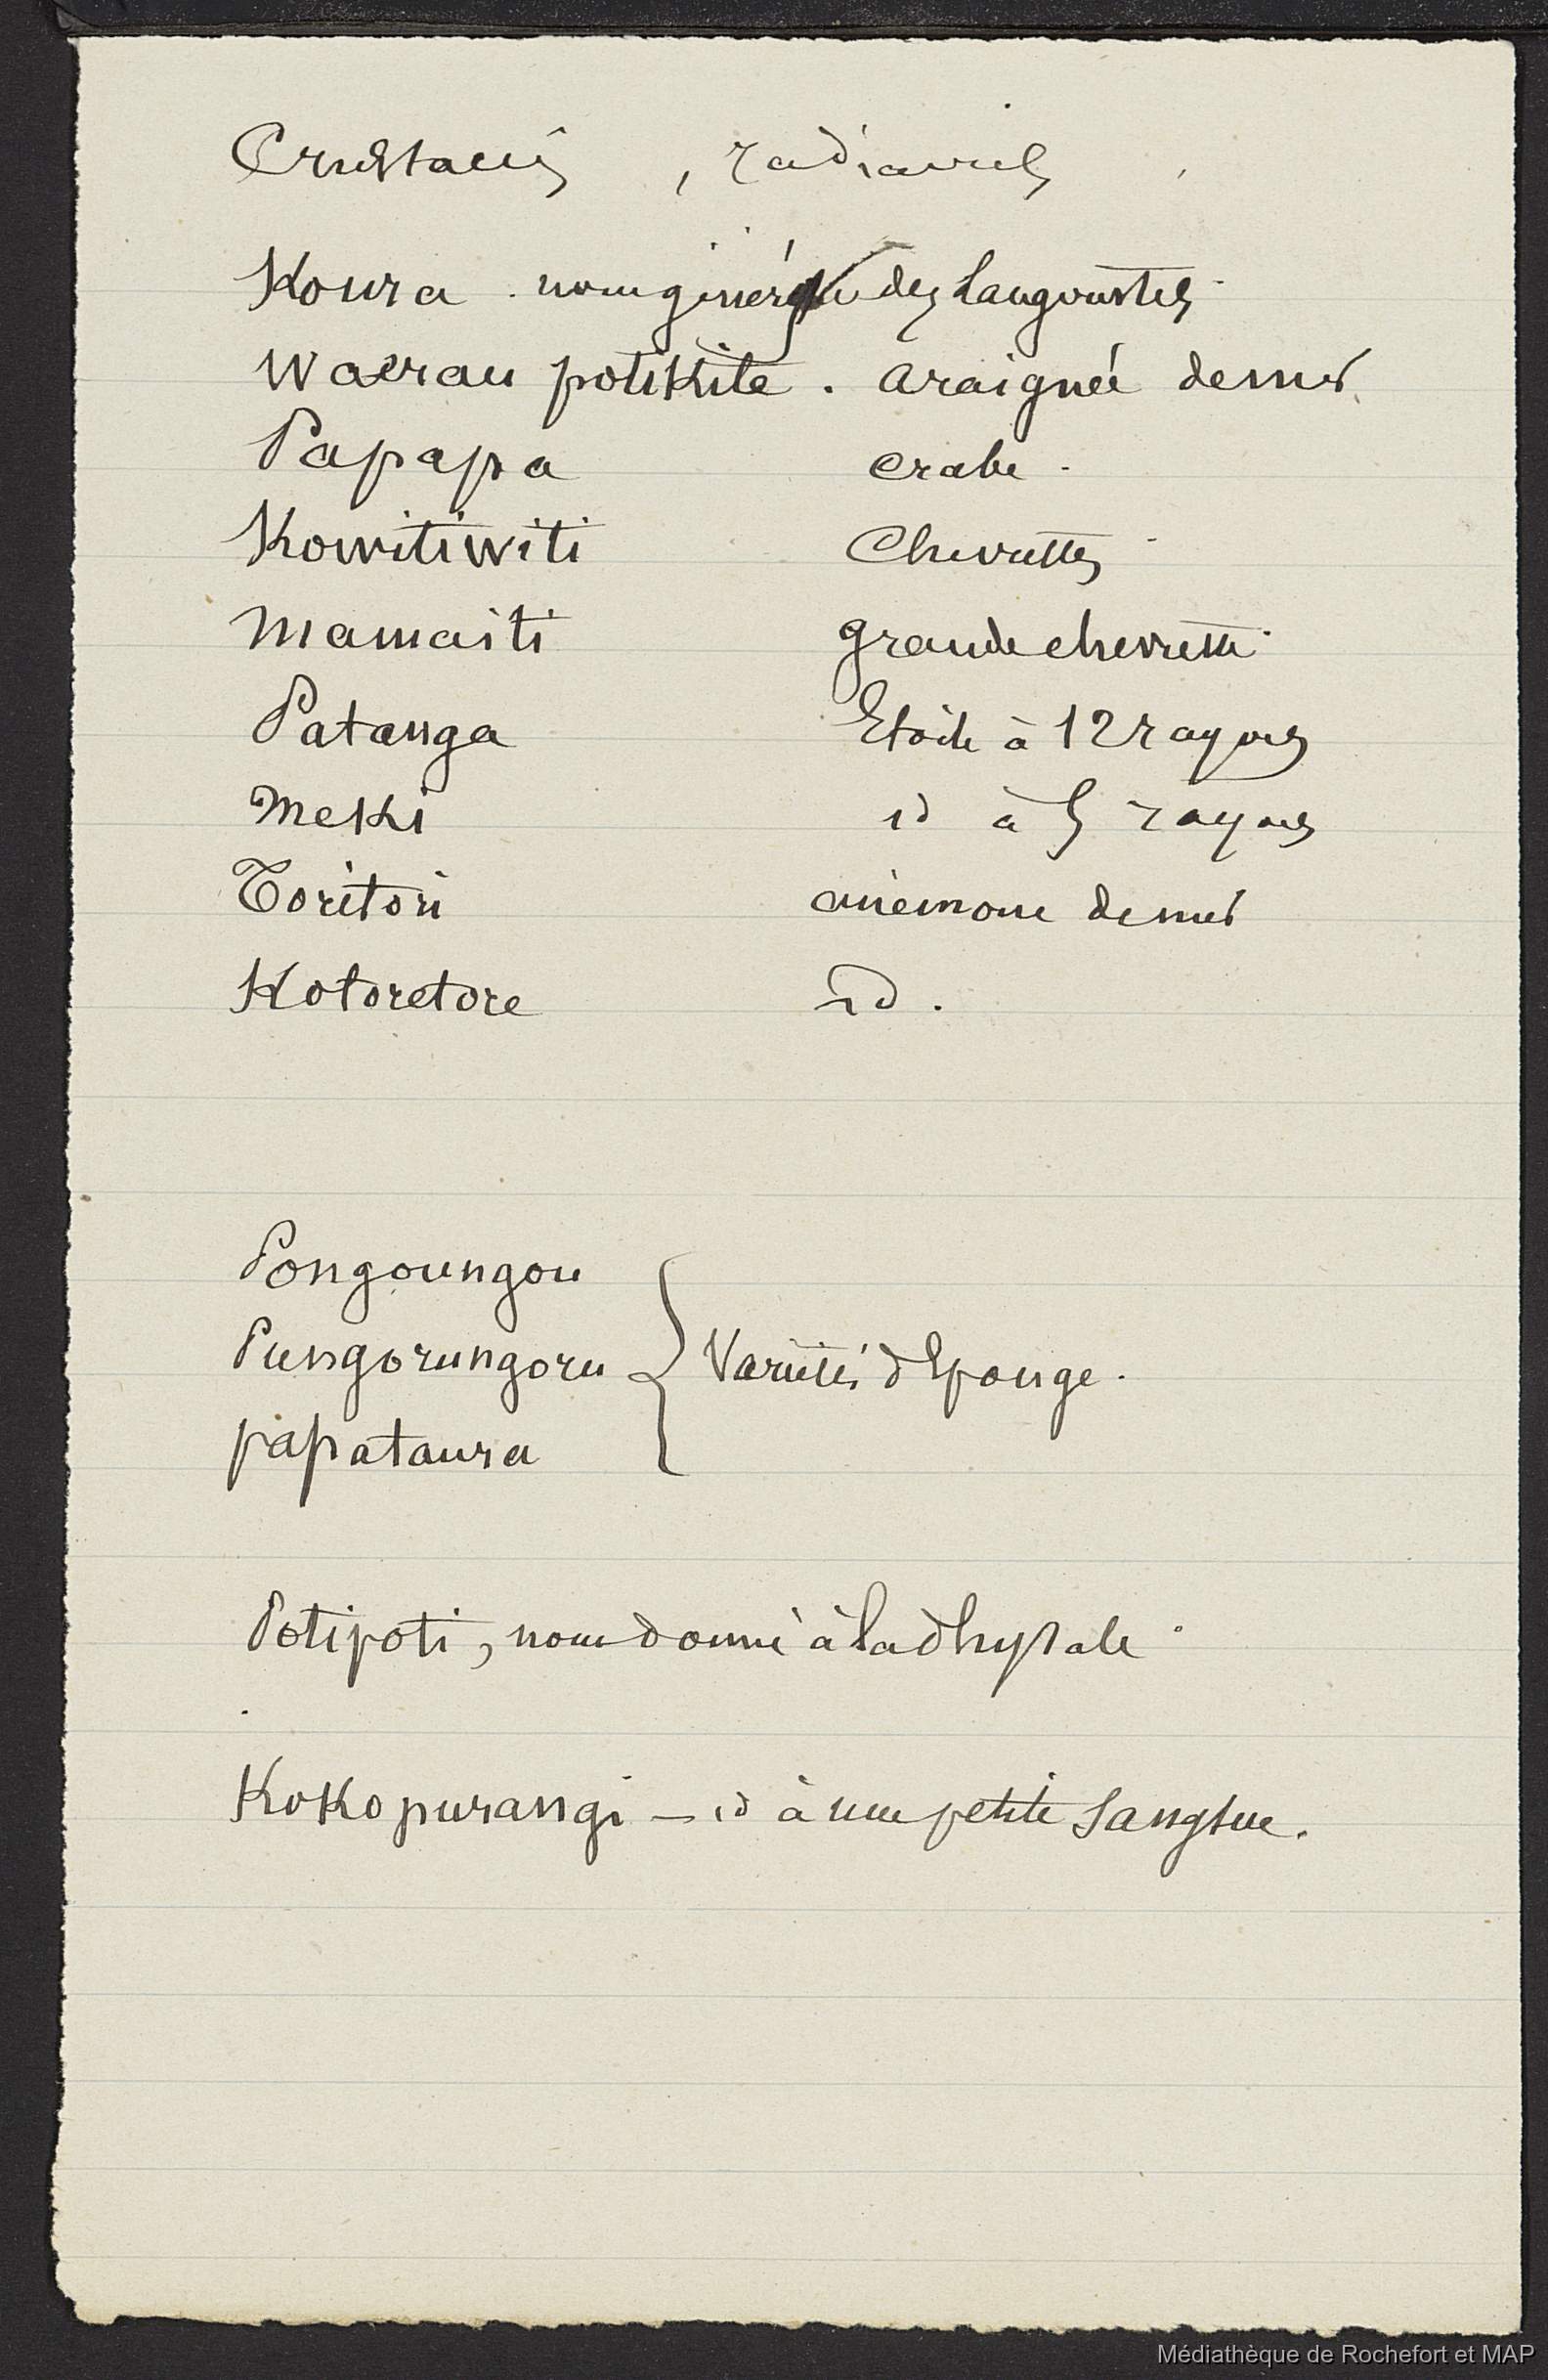 Crustacés, radiaires
Koura. nom générique des Langoustes.
Waerau potikite. Araignée de mer.
Papapa crabe.
Kowitiwiti Chevrettes.
Mamaiti grande chevrette.
Patanga Etoile à 12 rayons
Meki id à 5 rayons
Toritori anémone de mer
Kotoretore id.
Pongoungou
Pungorungoru { Variétés d'Eponge.
papataura
Potipoti, nom donné à la
Kokopurangi — id à une petite Sangsue.
Médiathèque de Rochefort et MAP